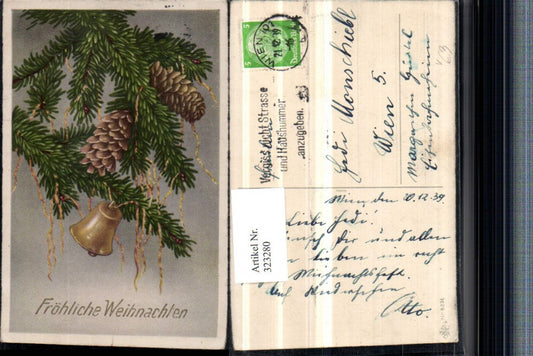 Fröhliche Weihnachten
Artikel Nr.
323280
5
5
WIEN
21.12.39
Vergiss nicht Strasse
und Hausnummer
anzugeben.
Jedi Monschiebl
Wien 5.
Margareten Gürtel
Wien, den 20.12.39
Liebe Jedi!
Dir und allen
Lieben ein recht
Weihnachtsfest.
Auf Wiedersehen
Otto.